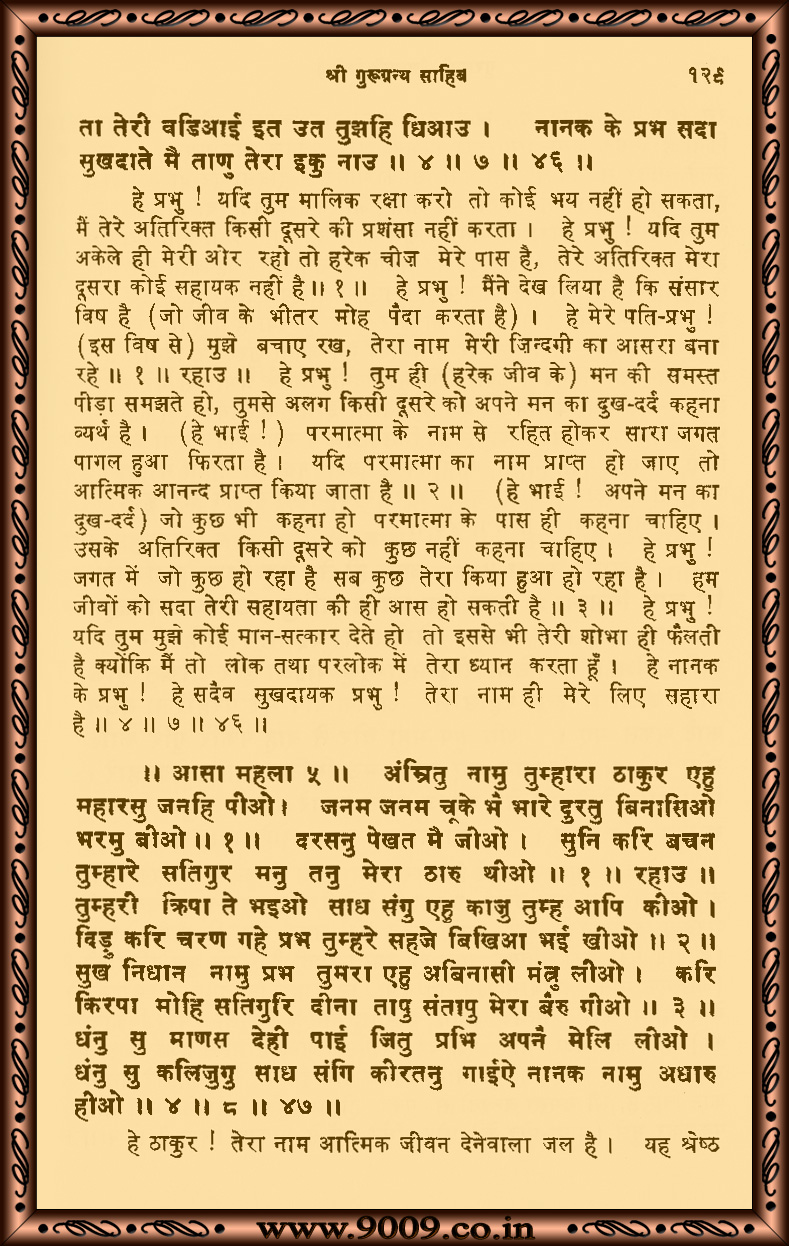 श्री गुरूग्रन्थ साहिब १२९
ता तेरी वडिआई इत उत तुझहि धिआउ । नानक के प्रभ सदा
सुखदाते मै ताणु तेरा इकु नाउ ॥ ४ ॥ ७ ॥ ४६ ॥
हे प्रभु ! यदि तुम मालिक रक्षा करो तो कोई भय नहीं हो सकता,
मैं तेरे अतिरिक्त किसी दूसरे की प्रशंसा नहीं करता । हे प्रभु ! यदि तुम
अकेले ही मेरी ओर रहो तो हरेक चीज़ मेरे पास है, तेरे अतिरिक्त मेरा
दूसरा कोई सहायक नहीं है ॥ १ ॥ हे प्रभु ! मैंने देख लिया है कि संसार
विष है (जो जीव के भीतर मोह पैदा करता है) । हे मेरे पति-प्रभु !
(इस विष से) मुझे बचाए रख, तेरा नाम मेरी ज़िन्दगी का आसरा बना
रहे ॥ १ ॥ रहाउ ॥ हे प्रभु ! तुम ही (हरेक जीव के) मन की समस्त
पीड़ा समझते हो, तुमसे अलग किसी दूसरे को अपने मन का दुख-दर्द कहना
व्यर्थ है । (हे भाई !) परमात्मा के नाम से रहित होकर सारा जगत
पागल हुआ फिरता है । यदि परमात्मा का नाम प्राप्त हो जाए तो
आत्मिक आनन्द प्राप्त किया जाता है ॥ २ ॥ (हे भाई ! अपने मन का
दुख-दर्द) जो कुछ भी कहना हो परमात्मा के पास ही कहना चाहिए ।
उसके अतिरिक्त किसी दूसरे को कुछ नहीं कहना चाहिए । हे प्रभु !
जगत में जो कुछ हो रहा है सब कुछ तेरा किया हुआ हो रहा है । हम
जीवों को सदा तेरी सहायता की ही आस हो सकती है ॥ ३ ॥ हे प्रभु !
यदि तुम मुझे कोई मान-सत्कार देते हो तो इससे भी तेरी शोभा ही फैलती
है क्योंकि मैं तो लोक तथा परलोक में तेरा ध्यान करता हूँ । हे नानक
के प्रभु ! हे सदैव सुखदायक प्रभु ! तेरा नाम ही मेरे लिए सहारा
है ॥ ४ ॥ ७ ॥ ४६ ॥
॥ आसा महला ५ ॥ अंम्रितु नामु तुम्हारा ठाकुर एहु
महारसु जनहि पीओ । जनम जनम चूके भै भारे दुरतु बिनासिओ
भरमु बीओ ॥ १ ॥ दरसनु पेखत मै जीओ । सुनि करि बचन
तुम्हारे सतिगुर मनु तनु मेरा ठारु थीओ ॥ १ ॥ रहाउ ॥
तुम्हरी क्रिपा ते भइओ साध संगु एहु काजु तुम्ह आपि कीओ ।
दिड़ु करि चरण गहे प्रभ तुम्हरे सहजे बिखिआ भई खीओ ॥ २ ॥
सुख निधान नामु प्रभ तुमरा एहु अबिनासी मंत्रु लीओ । करि
किरपा मोहि सतिगुरि दीना तापु संतापु मेरा बैरु गीओ ॥ ३ ॥
धंनु सु माणस देही पाई जितु प्रभि अपनै मेलि लीओ ।
धंनु सु कलिजुगु साध संगि कीरतनु गाईऐ नानक नामु अधारु
हीओ ॥ ४ ॥ ८ ॥ ४७ ॥
हे ठाकुर ! तेरा नाम आत्मिक जीवन देनेवाला जल है । यह श्रेष्ठ
www.9009.co.in